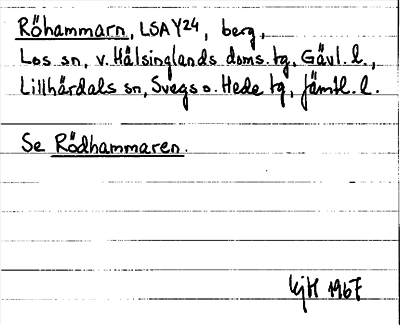 Röhammarn, LSA Y24, berg,
Los sn, v. Hälsinglands doms. tg, Gävl. l.,
Lillhärdals sn, Svegs o. Hede tg, Jämtl. l.
Se Rödhammaren.
KjH 1967